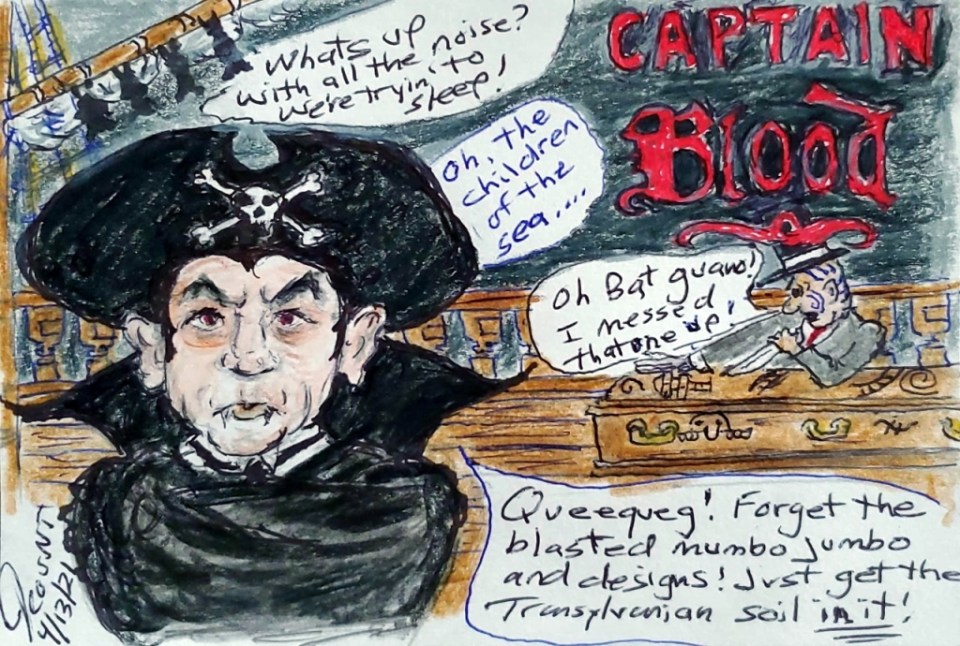 Whats up
with all the noise?
We're tryin' to
sleep!
CAPTAIN
Blood
Oh, the
children
of the
sea....
Oh Bat guano!
I messed
that one up!
Queequeg! Forget the
blasted mumbo jumbo
and designs! Just get the
Transylvanian soil in it!
4/13/21